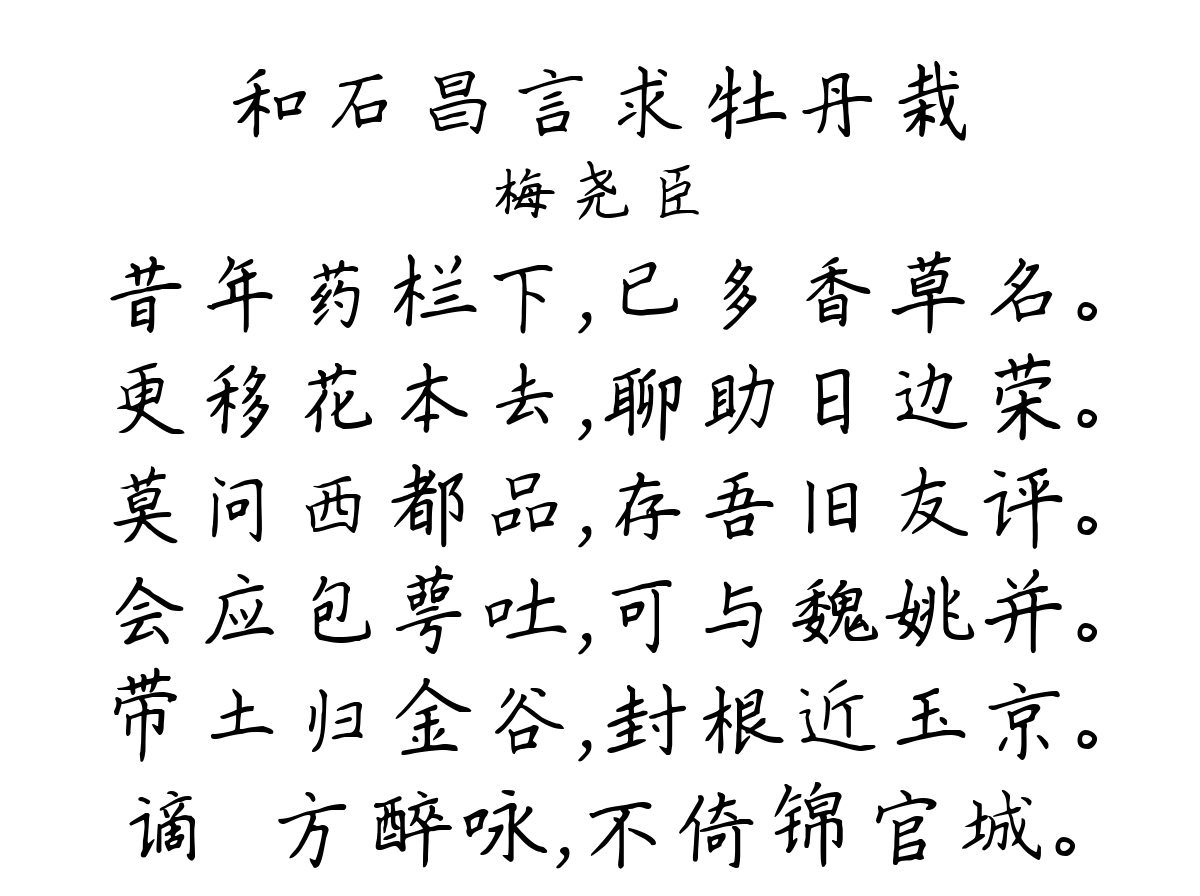 和石昌言求牡丹栽
梅尧臣
昔年药栏下,已多香草名。
更移花本去,聊助日边荣。
莫问西都品,存吾旧友评。
会应包萼吐,可与魏姚并。
带土归金谷,封根近玉京。
谪 方醉咏,不倚锦官城。